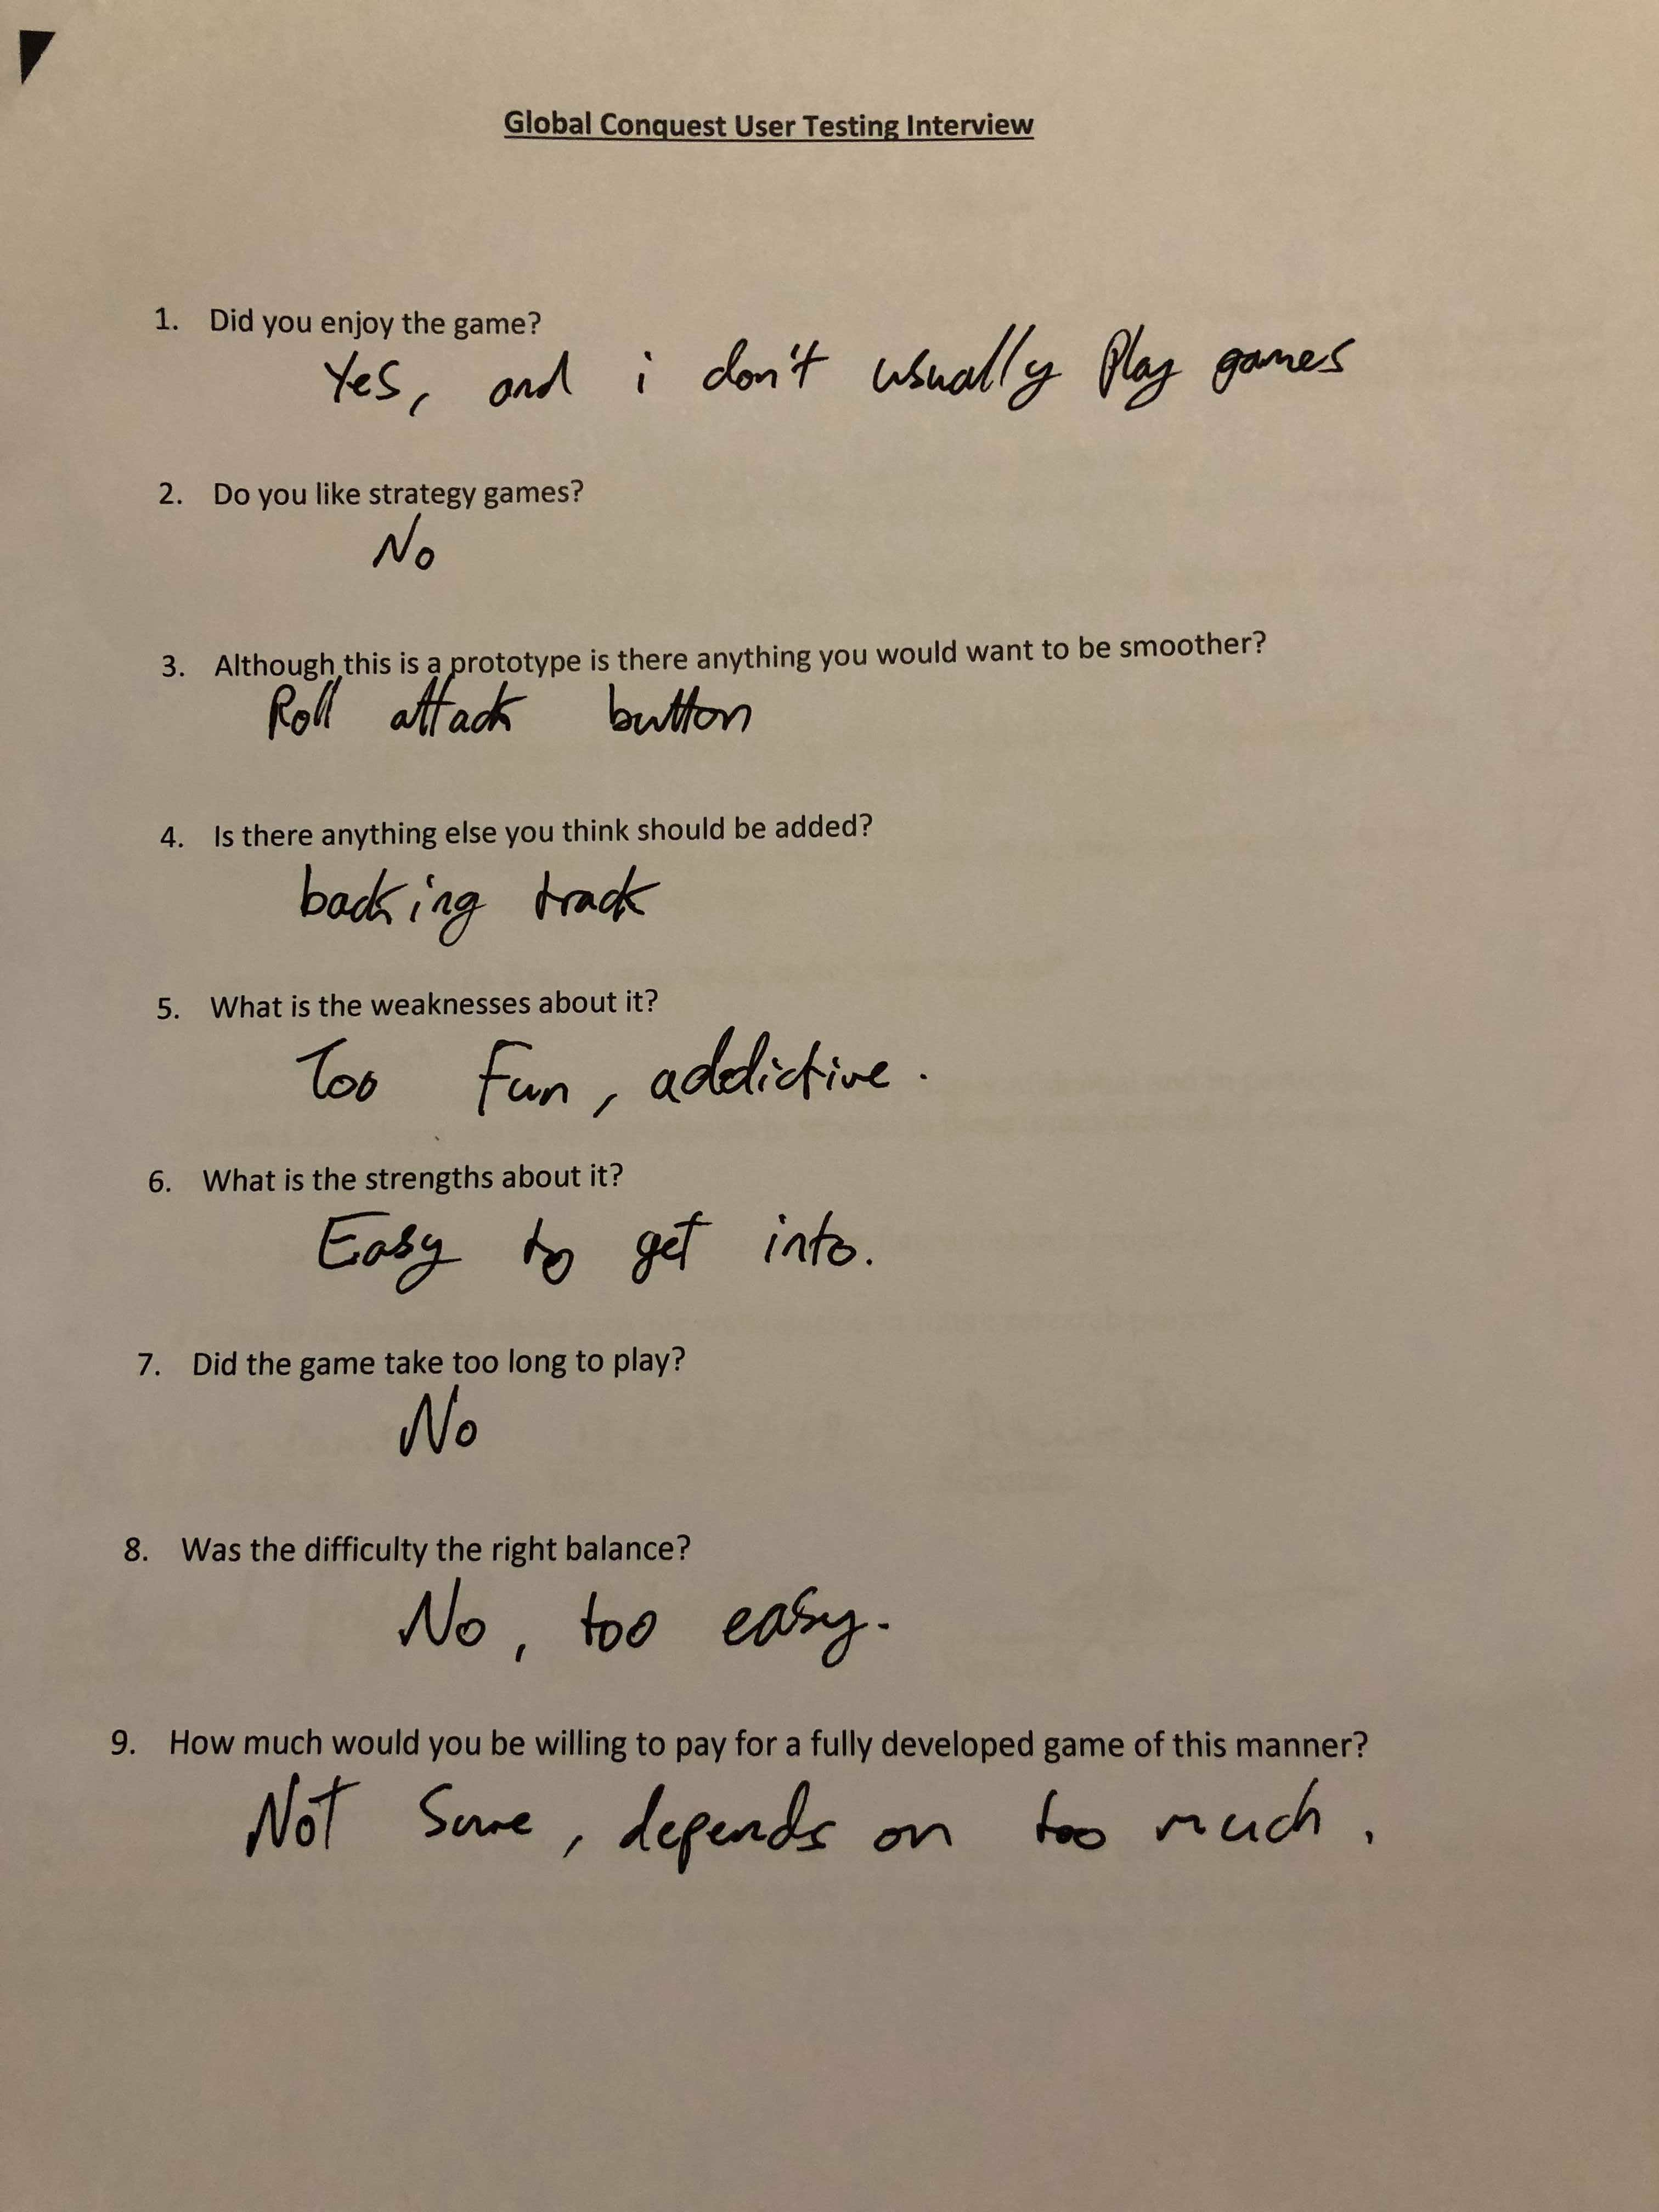 Global Conquest User Testing Interview
1. Did you enjoy the game?
Yes, and i don't usually Play games
2. Do you like strategy games?
No
3. Although this is a prototype is there anything you would want to be smoother?
Roll attack button
4. Is there anything else you think should be added?
backing track
5. What is the weaknesses about it?
Too fun, addictive.
6. What is the strengths about it?
Easy to get into.
7. Did the game take too long to play?
No
8. Was the difficulty the right balance?
No, too easy.
9. How much would you be willing to pay for a fully developed game of this manner?
Not Sure, depends on too much.